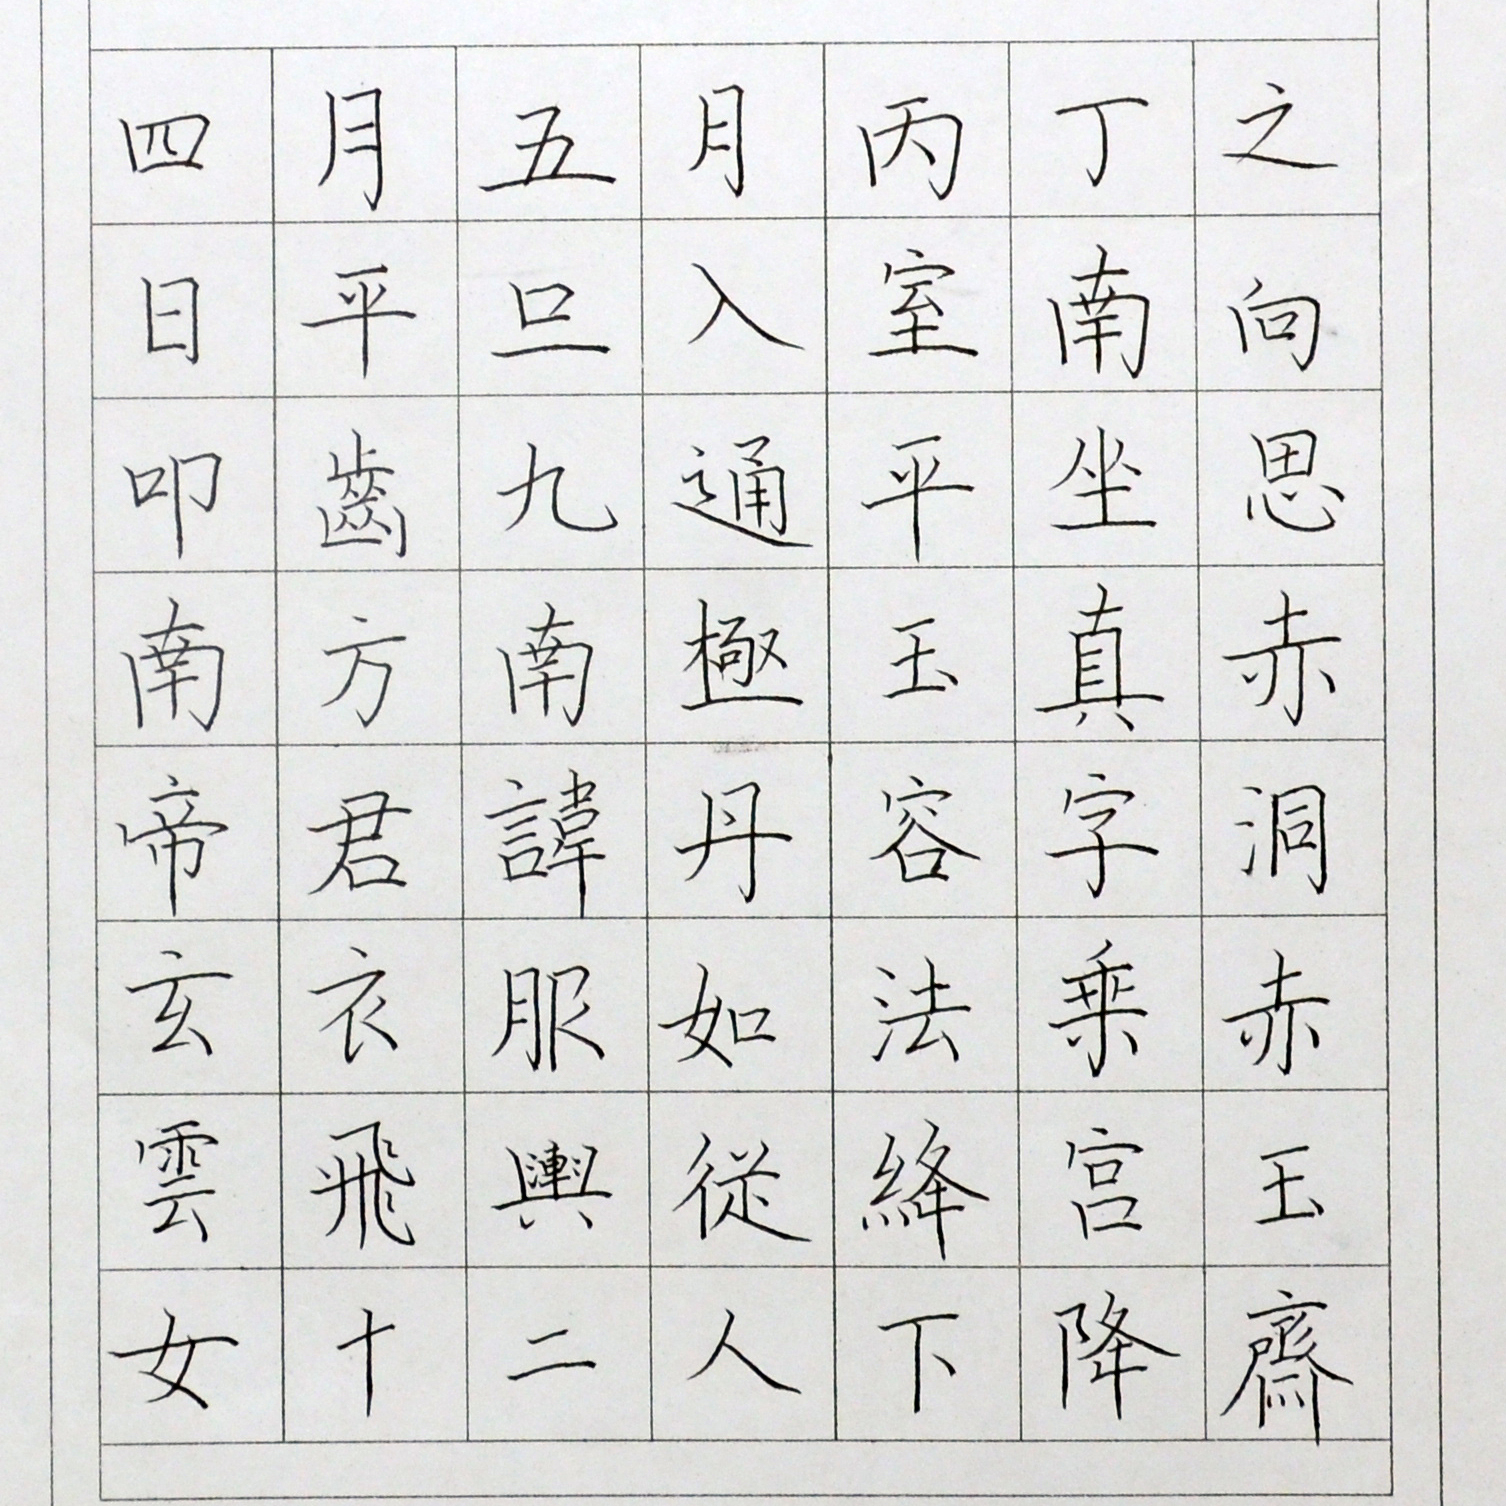 四月五月丙丁之
日平旦入室南向
叩齒九通平坐思
南方南極玉真赤
帝君諱丹容字洞
玄衣服如法乗赤
雲飛輿従絳宫玉
女十二人下降齋